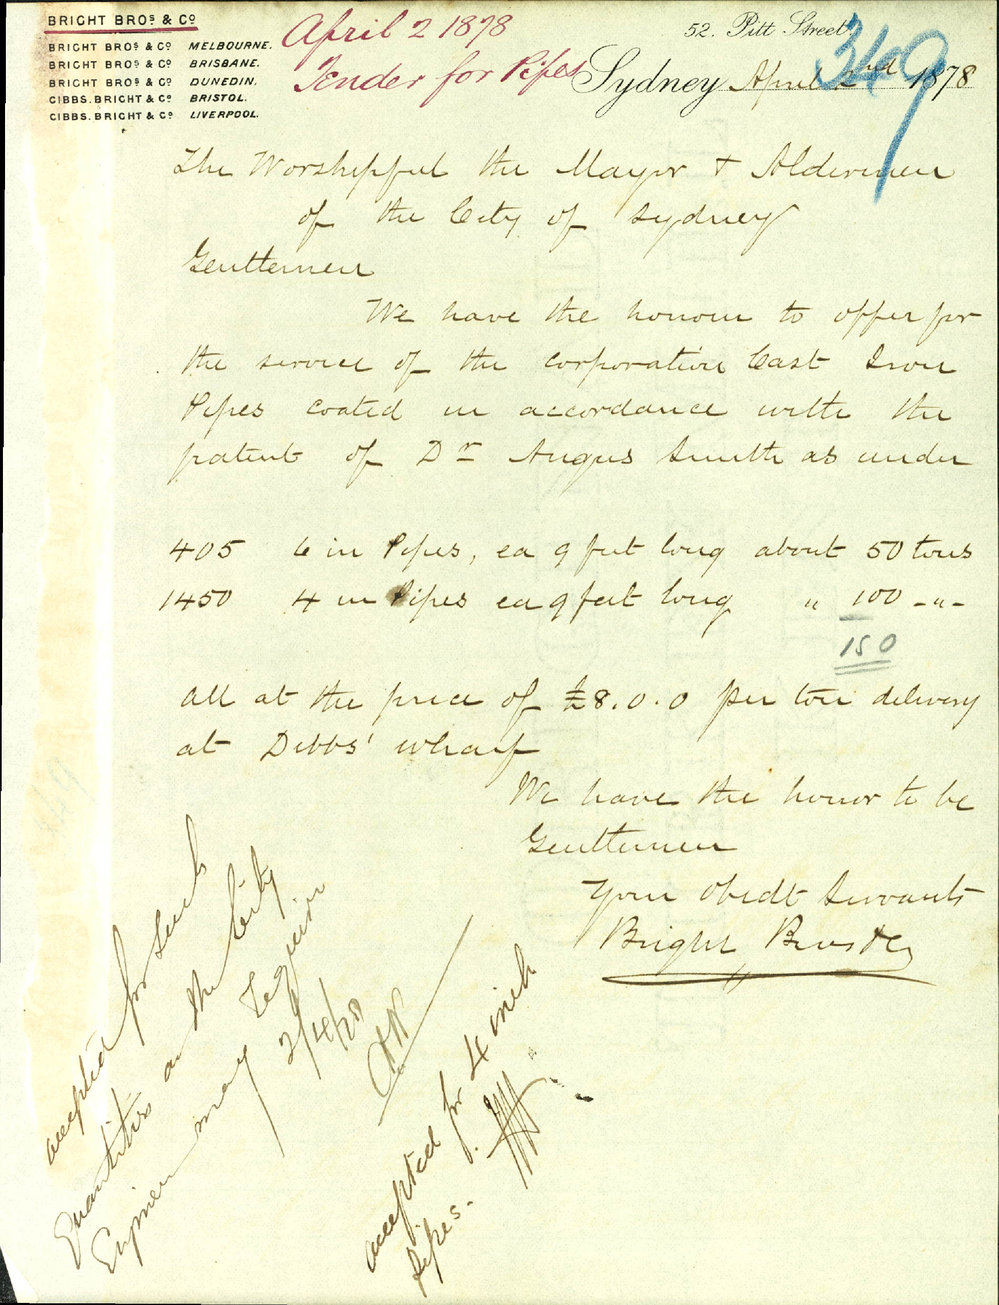 BRIGHT BROS & CO
BRIGHT BROS & CO MELBOURNE.
BRIGHT BROS & CO BRISBANE.
BRIGHT BROS & CO DUNEDIN.
GIBBS. BRIGHT & CO BRISTOL.
GIBBS. BRIGHT & CO LIVERPOOL.
April 2 1878
Tender for Pipes
349
52. Pitt Street
Sydney April 2nd 1878
The Worshipful the Mayor + Aldermen
of the City of Sydney
Gentlemen
We have the honour to offer for
the service of the Corporation Cast Iron
Pipes coated in accordance with the
patent of Dr Angus Smith as under
405 6 in Pipes, ea 9 feet long about 50 tons
1450 4 in Pipes ea 9 feet long " 100 - " -
150
All at the price of £8.0.0 per ton delivery
at Dibbs' wharf
We have the honor to be
Gentlemen
Your Obedt Servants
Bright Bros & Co
accepted for such
quantities as the City
Engineer may require
2/4/78
accepted for 4 inch
pipes.
349